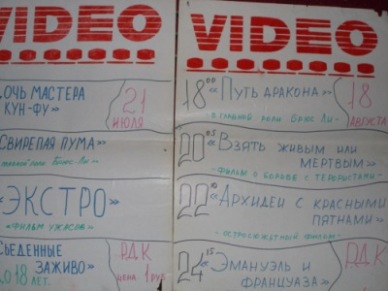 VIDEO
.ОЧЬ МАСТЕРА
КУН-ФУ»
21
ИЮЛЯ
СВИРЕПАЯ ПУМА»
БРЮС ЛИ
«ЭКСТРО»
«ФИЛЬМ УЖАСОВ»
СЪЕДЕННЫЕ
ЗАЖИВО»
ДО 18 ЛЕТ.
РДК
ЦЕНА 1 РУБ
VIDEO
18 00 «ПУТЬ ДРАКОНА»
- В ГЛАВНОЙ РОЛИ БРЮС ЛИ -
18
АВГУСТА
20 05 «ВЗЯТЬ ЖИВЫМ ИЛИ
МЕРТВЫМ»
- ФИЛЬМ О БОРЬБЕ С ТЕРРОРИСТАМИ -
22 10 «АРХИДЕИ С КРАСНЫМИ
ПЯТНАМИ»
- ОСТРОСЮЖЕТНЫЙ ФИЛЬМ -
24 15 «ЭМАНУЭЛЬ И
ФРАНЦУАЗА»
РДК